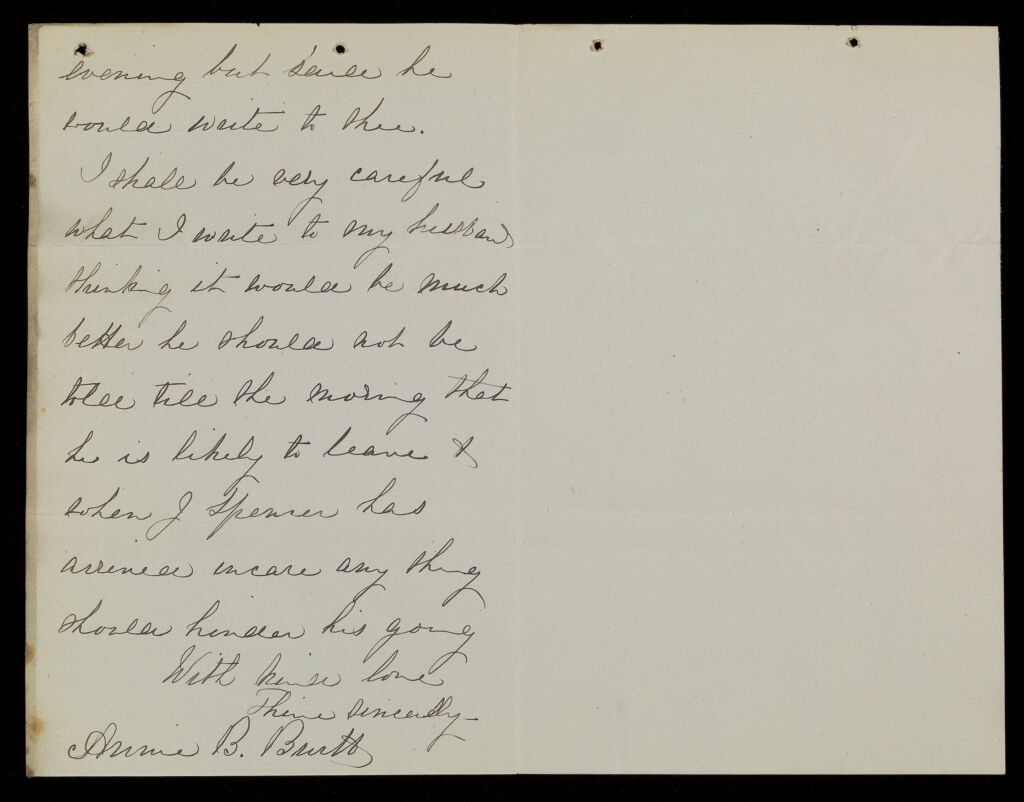 evening but saide he
would write to thee.
I shall be very careful
what I write to my husband
thinking it would be much
better he should not be
told till the morning that
he is likely to leave &
when J Spencer has
arrived incase any thing
should hinder his going
With kind love
Thine sincerely
Annie B. Burtt